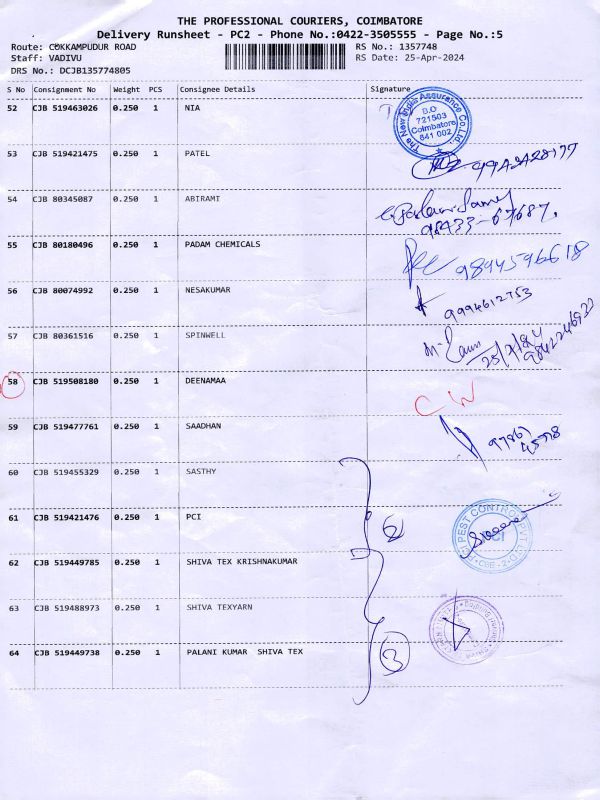 THE PROFESSIONAL COURIERS, COIMBATORE
Delivery Runsheet - PC2 - Phone No.:0422-3505555 - Page No.:5
Route: COKKAMPUDUR ROAD RS No.: 1357748
Staff: VADIVU RS Date: 25-Apr-2024
DRS No.: DCJB135774805
S No Consignment No Weight PCS Consignee Details Signature
52 CJB 519463026 0.250 1 NIA
The New India Assurance Co. Ltd.
D.O
721503
Coimbatore
641 002
53 CJB 519421475 0.250 1 PATEL
54 CJB 80345087 0.250 1 ABIRAMI
98433-67687
55 CJB 80180496 0.250 1 PADAM CHEMICALS
9894596618
56 CJB 80074992 0.250 1 NESAKUMAR
9994612753
57 CJB 80361516 0.250 1 SPINWELL
58 CJB 519508180 0.250 1 DEENAMAA CW
59 CJB 519477761 0.250 1 SAADHAN
60 CJB 519455329 0.250 1 SASTHY
61 CJB 519421476 0.250 1 PCI
2
PCI PEST CONTROL PVT LTD
CBE - 2
62 CJB 519449785 0.250 1 SHIVA TEX KRISHNAKUMAR
63 CJB 519488973 0.250 1 SHIVA TEXYARN
64 CJB 519449738 0.250 1 PALANI KUMAR SHIVA TEX
3